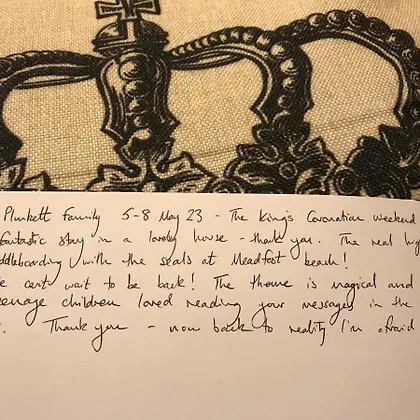 Plunkett Family 5-8 May 23 - The King's Coronation weekend
fantastic stay in a lovely house - thank you. The real hig
ddleboarding with the seals at Meadfoot beach!
e can't wait to be back! The theme is magical and
eenage children loved reading your messages in the
. Thank you - now back to reality I'm afraid